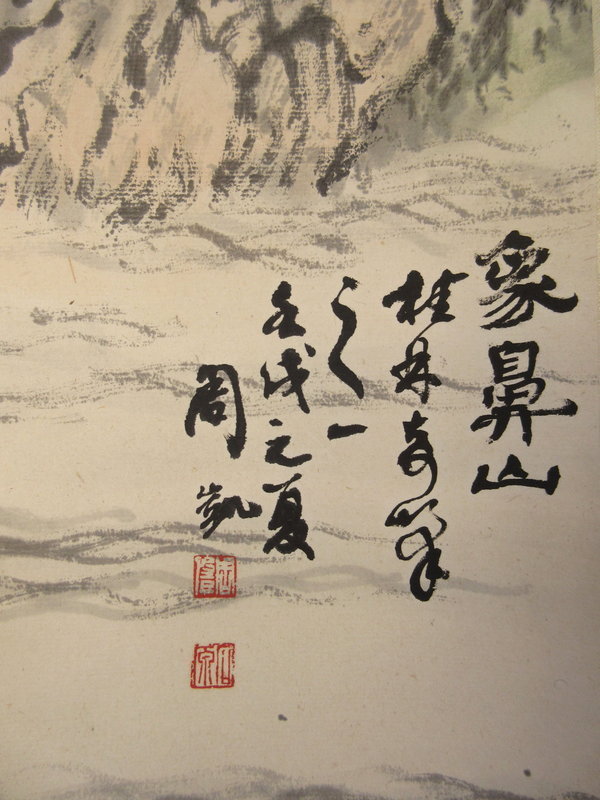 象鼻山
桂林奇峯
之一
壬戌之夏
周凱